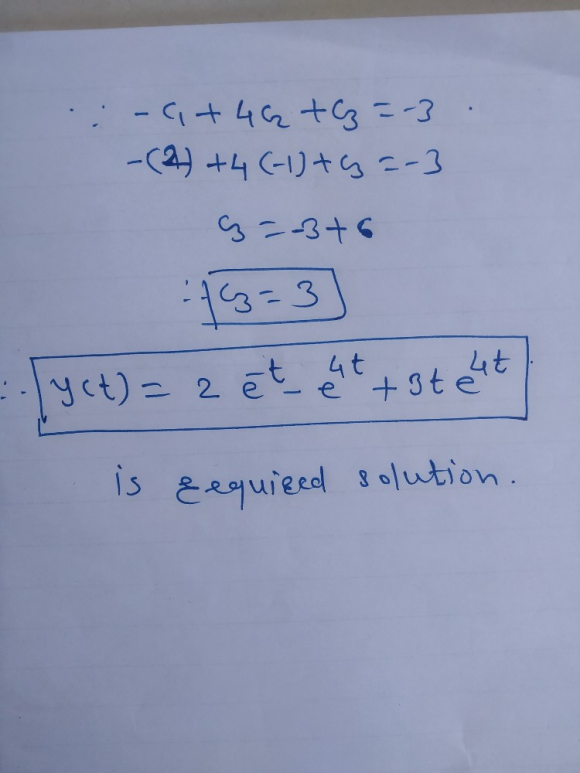 ∵ -c₁ + 4c₂ + c₃ = -3
-(2) + 4(-1) + c₃ = -3
c₃ = -3 + 6
∴ c₃ = 3
∴ y(t) = 2e^-t - e^4t + 3te^4t
is required solution.